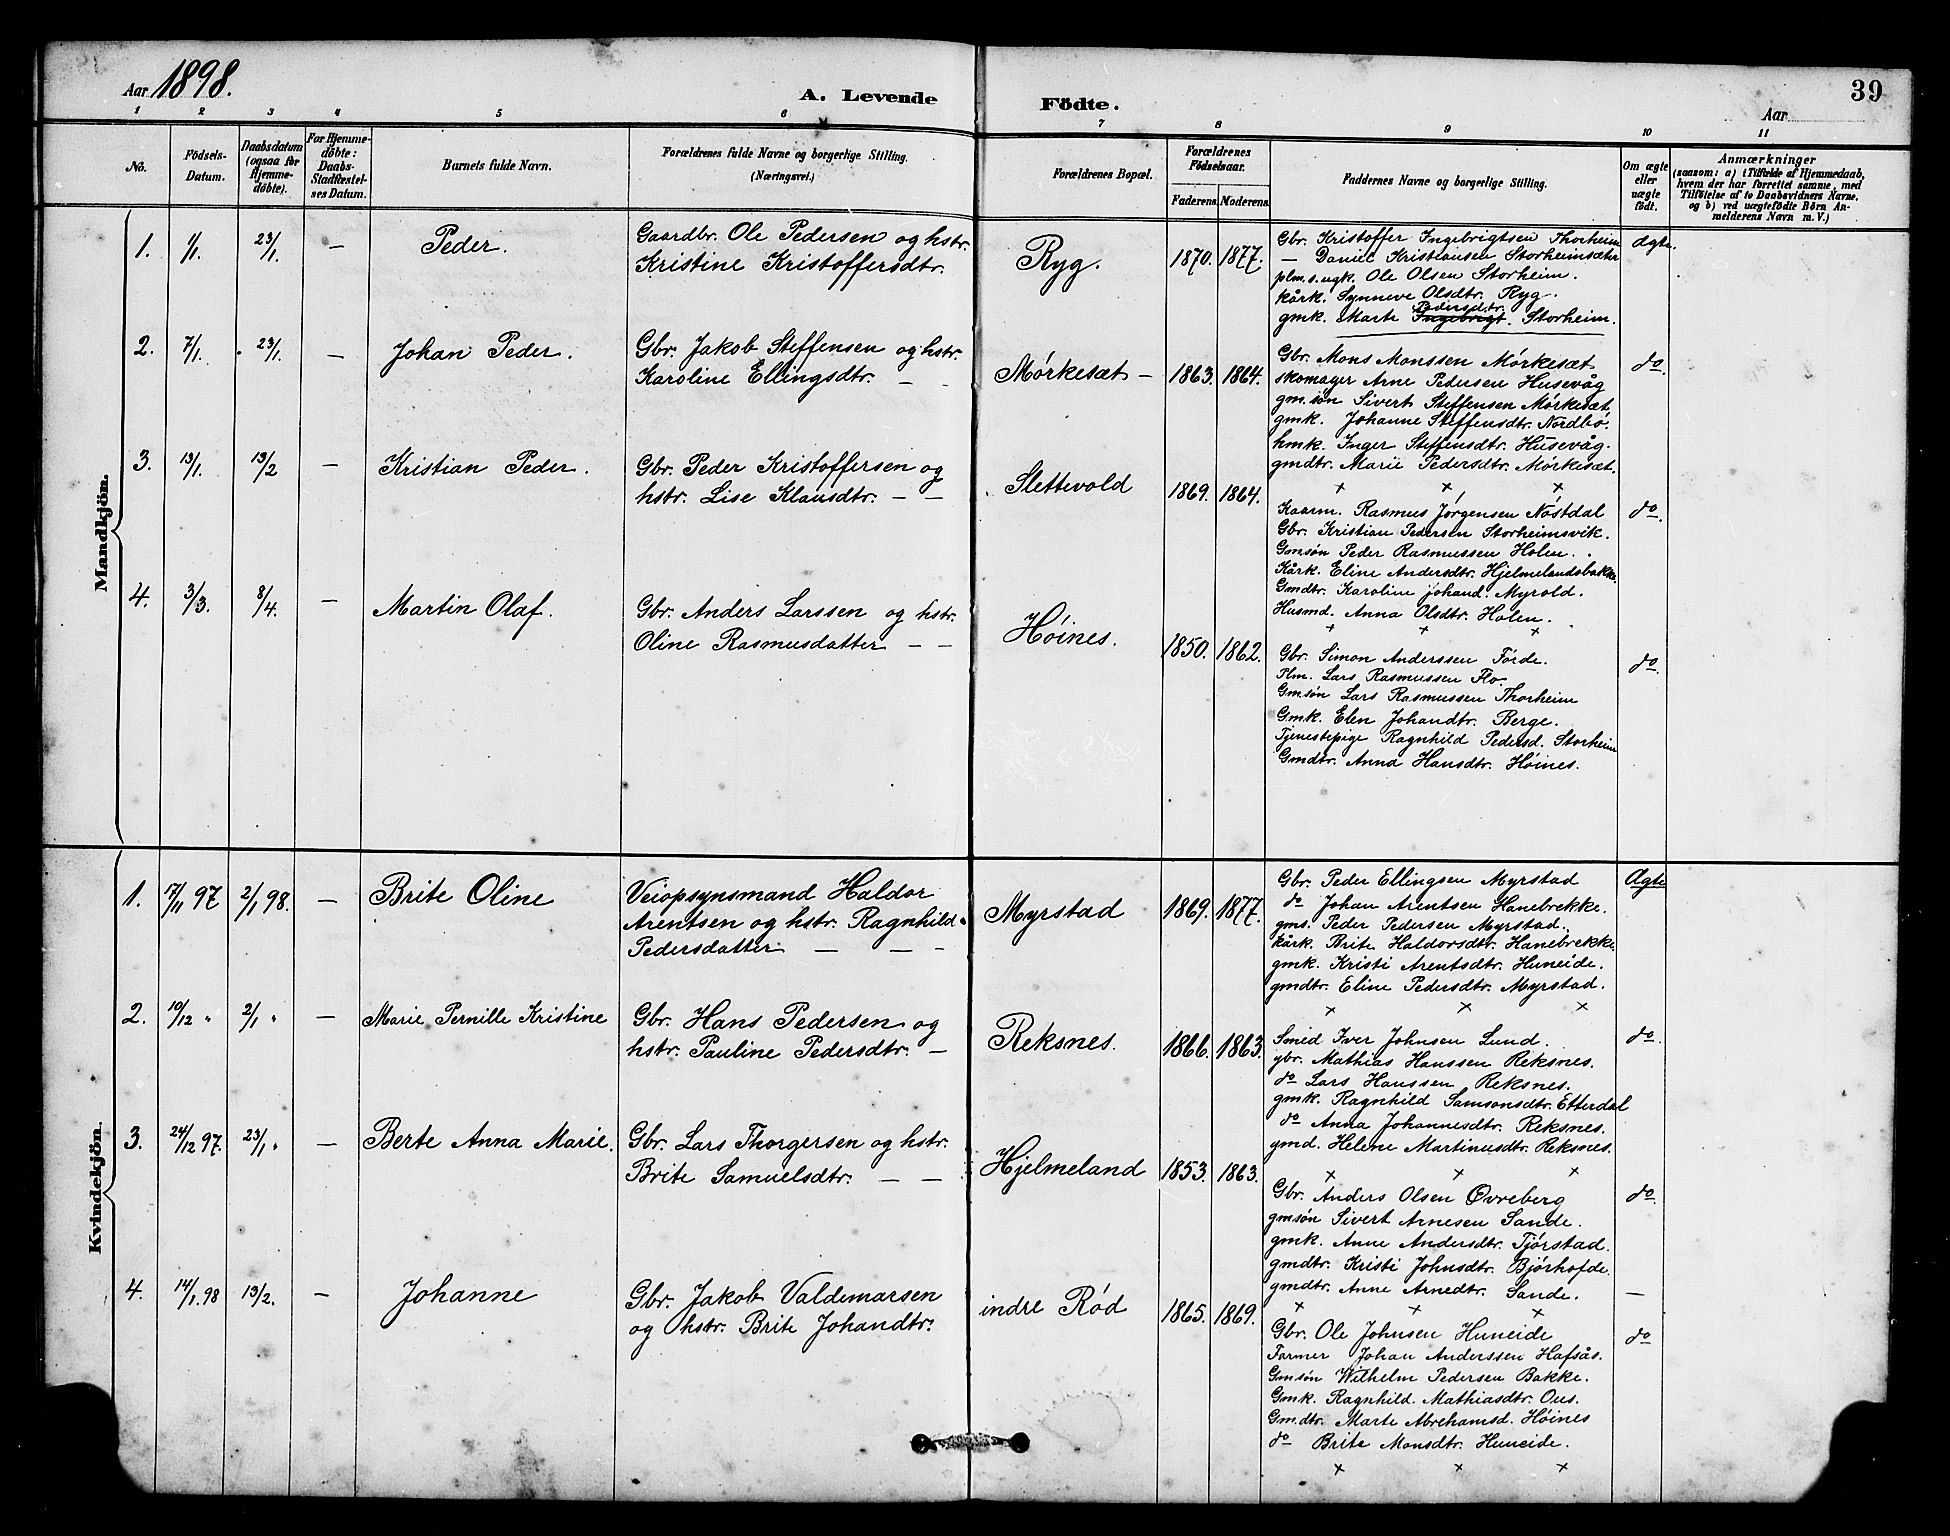 Aar 1898.
A. Levende Födte.
Aar
39
1 2 3 4 5 6 7 8 9 10 11
No.
Födsels-Datum.
Daabsdatum (ogsaa for Hjemme-döbte).
For Hjemme-döbte: Daabs-Stadfæstel-ses Datum.
Barnets fulde Navn.
Forældrenes fulde Navne og borgerlige Stilling.
(Næringsvei.)
Forældrenes Bopæl.
Forældrenes Födselsaar.
Faderens. Moderens.
Faddernes Navne og borgerlige Stilling.
Om ægte eller uægte födt.
Anmærkninger
(saasom: a) i Tilfælde af Hjemmedaab,
hvem der har forrettet samme, med
Tilföielse af to Daabsvidners Navne.
og b) ved uægtefödte Börn An-
melderens Navn m. V.)
Mandkjön.
1. 1/1. 23/1. — Peder.
Gaardbr. Ole Pedersen og hstr.
Kristine Kristoffersdtr.
Ryg. 1870. 1877.
Gbr. Kristoffer Ingebrigtsen Thorheim
— Daniel Kristiansen Storheimsæter
plm. s. ugk. Ole Olsen Storheim.
kårk. Synneve Olsdtr. Ryg.
Pedersdtr.
gmk. Marte Ingebrigt. Storheim.
Ægte.
2. 7/1. 23/1. — Johan Peder.
Gbr. Jakob Steffensen og hstr.
Karoline Ellingsdtr. — —
Mørkesæt — 1863. 1864.
Gbr. Mons Monssen Mørkesæt
skomager Arne Pedersen Husevåg
gm.søn Sivert Steffensen Mørkesæt
gmk. Johanne Steffensdtr. Nordbø.
hmk. Inger Steffensdtr. Husevåg.
gmdtr. Marie Pedersdtr. Mørkesæt.
x x x
do.
3. 13/1. 13/2 — Kristian Peder.
Gbr. Peder Kristoffersen og
hstr. Lise Klausdtr. — —
Slettevold 1869. 1864.
Kaarm. Rasmus Jørgensen Nøstdal
Gbr. Kristian Pedersen Storheimsvik.
Gmsøn Peder Rasmussen Holen.
Kårk. Eline Andersdtr. Hjelmelandsbakke.
Gmdtr. Karoline Johand. Myrold.
Husmd. Anna Olsdtr. Holen.
x x x
do.
4. 3/3. 8/4. — Martin Olaf.
Gbr. Anders Larssen og hstr.
Oline Rasmusdatter — —
Høines. 1850. 1862.
Gbr. Simon Anderssen Førde.
Plm. Lars Rasmussen Flo.
Gmsøn Lars Rasmussen Thorheim
Gmk. Elen Johandtr. Berge.
Tjenestepige Ragnhild Pedersd. Storheim
Gmdtr. Anna Hansdtr. Høines.
do
Kvindekjön.
1. 17/11 97 2/1 98. — Brite Oline
Veiopsynsmand Haldor
Arentsen og hstr. Ragnhild
Pedersdatter — — —
Myrstad 1869. 1877.
Gbr. Peder Ellingsen Myrstad
do Johan Arentsen Hanebrekke.
gms. Peder Pedersen Myrstad.
kårk. Brite Haldorsdtr. Hanebrekke.
gmk. Kristi Arentsdtr. Huneide.
gmdtr. Eline Pedersdtr. Myrstad.
x x x
Ægte
2. 10/12 " 2/1 " — Marie Pernille Kristine
Gbr. Hans Pedersen og
hstr. Pauline Pedersdtr. —
Reksnes. 1866. 1863.
Smed Iver Johnsen Lund.
gbr. Mathias Hanssen Reksnes.
do Lars Hanssen Reksnes.
gmk. Ragnhild Samsonsdtr. Etterdal
do Anna Johannesdtr. Reksnes.
gmd. Helene Martinusdtr. Reksnes.
x x x
do.
3. 24/12 97. 23/1 " — Berte Anna Marie.
Gbr. Lars Thorgersen og hstr.
Brite Samuelsdtr. — —
Hjelmeland 1853. 1863.
Gbr. Anders Olsen Øvreberg
gmsøn Sivert Arnesen Sande.
gmk. Anne Andersdtr. Tjørstad.
gmdtr. Kristi Johnsdtr. Bjørhofde.
gmdtr. Anne Arnedtr. Sande.
x x x
do.
—
4. 14/1. 98 13/2. — Johanne
Gbr. Jakob Valdemarsen
og hstr. Brite Johandtr.
indre Rød 1865. 1869.
Gbr. Ole Johnsen Huneide
Farmer Johan Anderssen Hafsås.
Gmsøn Wilhelm Pedersen Bakke.
Gmk. Ragnhild Mathiasdtr. Ous.
Gm.dtr. Marte Abrehamsd. Høines
do Brite Monsdtr. Huneide.
x x x
do